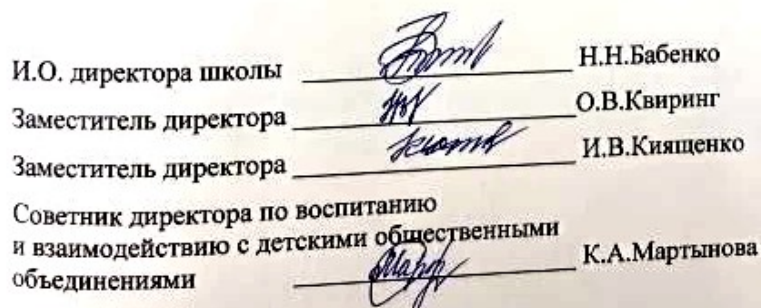 И.О. директора школы Н.Н.Бабенко
Заместитель директора О.В.Квиринг
Заместитель директора И.В.Киященко
Советник директора по воспитанию
и взаимодействию с детскими общественными
объединениями К.А.Мартынова